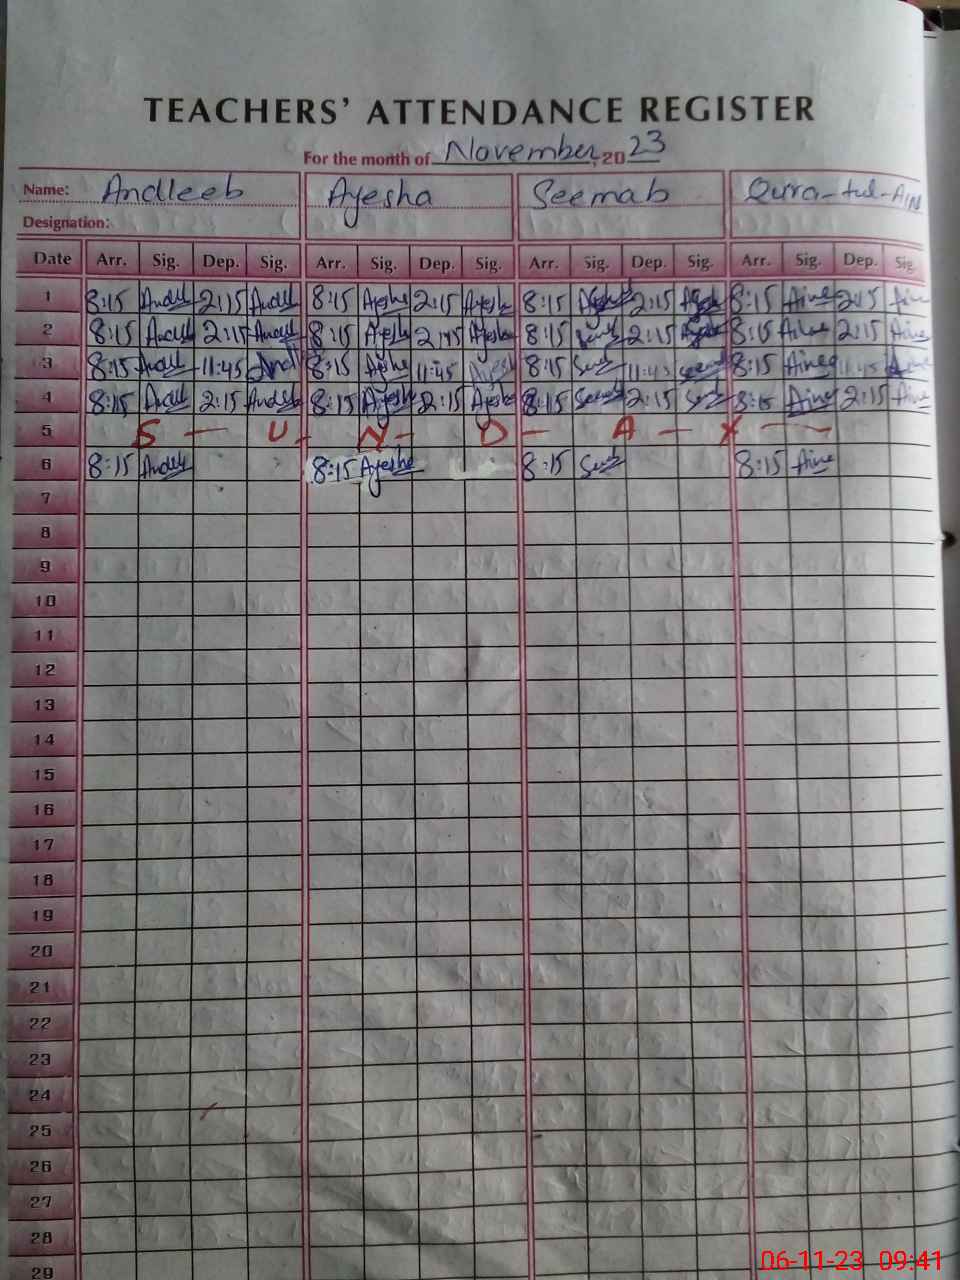 TEACHERS' ATTENDANCE REGISTER
For the month of November, 20 23
Name: Andleeb Ayesha Seemab Qura-tul-AIN
Designation:
Date Arr. Sig. Dep. Sig. Arr. Sig. Dep. Sig. Arr. Sig. Dep. Sig. Arr. Sig. Dep. Sig.
1 8:15 2:15 8:15 Ayesha 2:15 Ayesha 8:15 2:15 8:15 Aine 2:15 Aine
2 8:15 2:15 8:15 Ayesha Ayesha 8:15 2:15 8:15 Aine 2:15 Aine
3 8:15 11:45 8:15 11:45 Ayesh 8:15 11:45 8:15 Aine 11:45
4 8:15 2:15 8:15 Ayesha 2:15 Ayesha 8:15 2:15 8:15 Aine 2:15 Aine
5 S - U - N - D - A - Y -
6 8:15 8:15 Ayesha 8:15 8:15 Aine
7
8
9
10
11
12
13
14
15
16
17
18
19
20
21
22
23
24
25
26
27
28
29
06-11-23 09:41